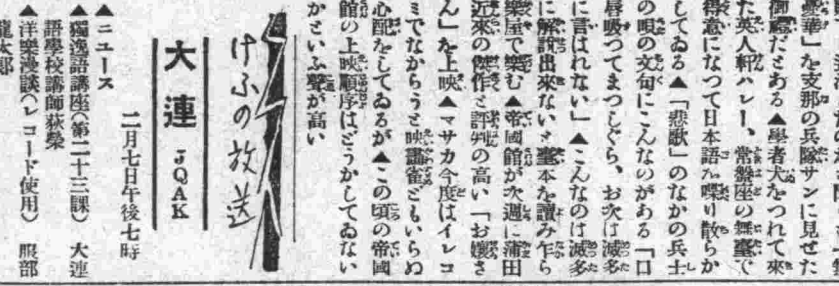 豪華」を支那の兵隊サンに見せた
御感だとある▲學者犬をつれて來
た英人軒ハレー、常盤座の舞臺で
得意になつて日本語を喋り散らか
してゐる▲「悲歌」のなかの兵士
の唄の文句にこんなのがある「口
唇吸つてまつしぐら、お次は滅多
に言はれない」▲こんなのは滅多
に解説出來ないと臺本を讀み乍ら
樂屋で樂む▲帝國館が次週に蒲田
近來の傑作と評判の高い「お孃さ
ん」を上映▲マサカ今度はイレコ
ミでなからうと映畫雀どもいらぬ
心配をしてゐるが▲この頃の帝國
館の上映順序はどうかしてゐない
かといふ聲が高い
けふの放送
大連 JQAK
二月七日午後七時
▲ニュース
▲獨逸語講座(第二十三課) 大連
語學校講師荻榮
▲洋樂漫談(レコード使用) 服部
龍太郎